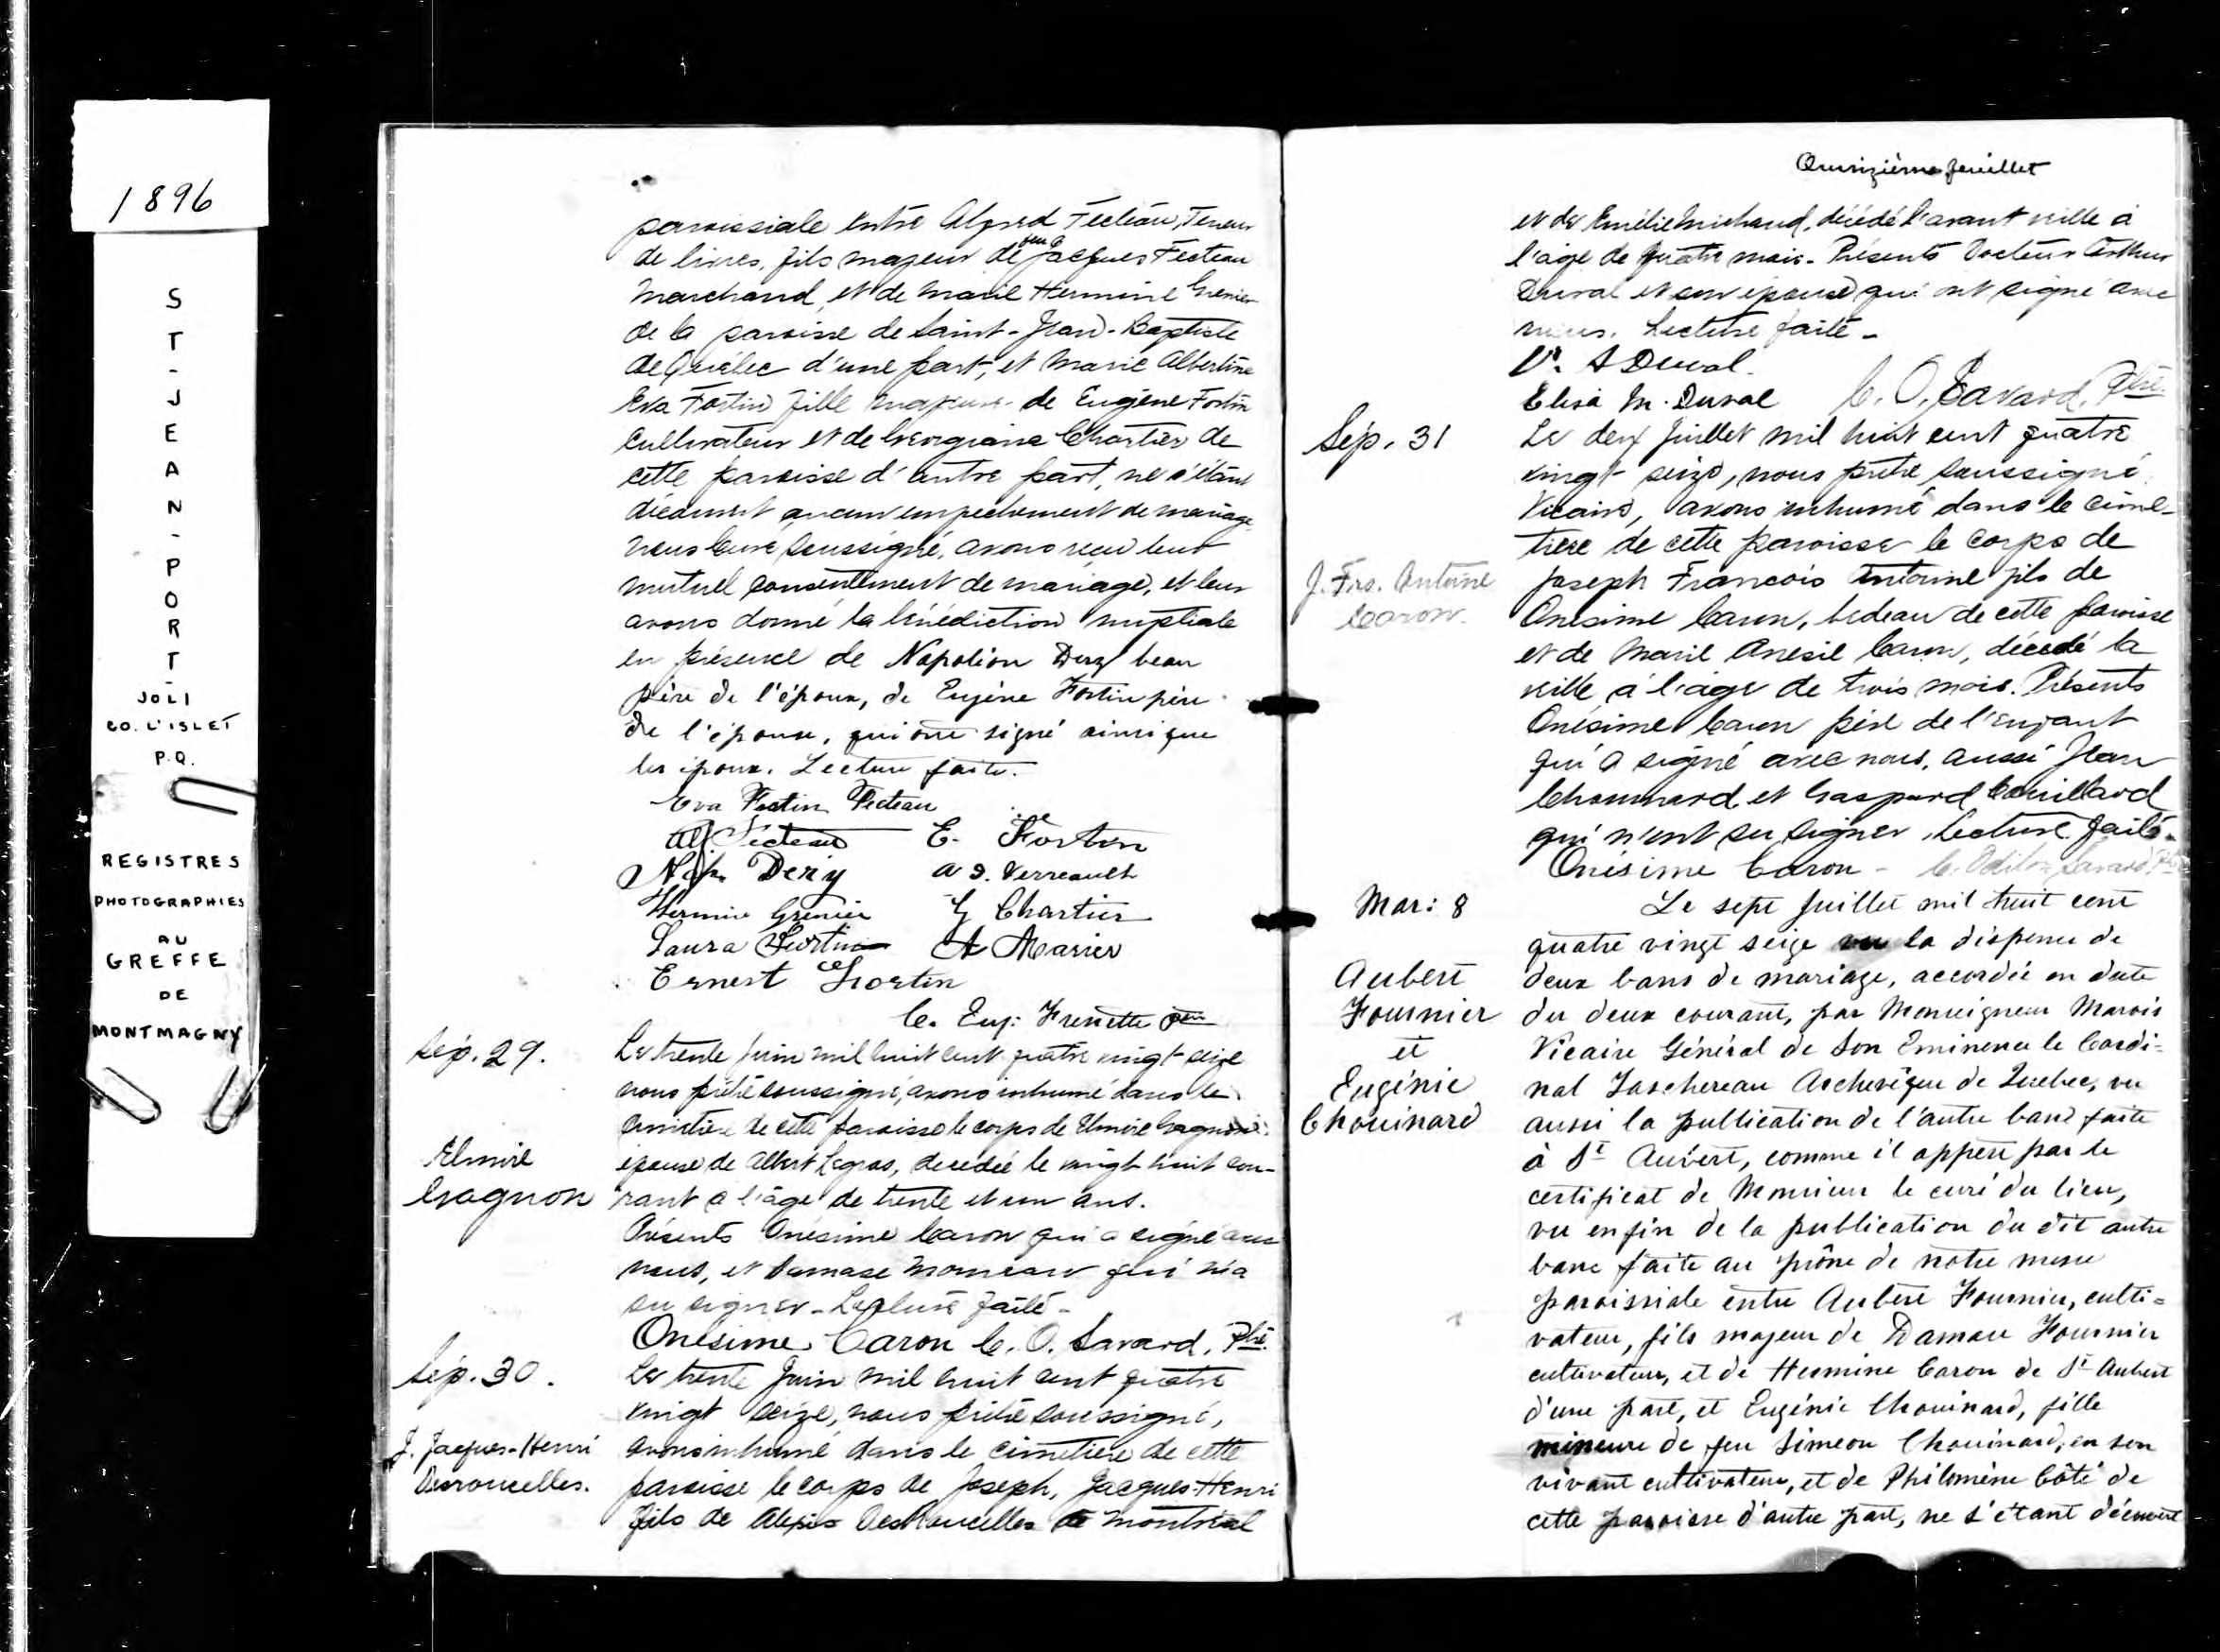 1896
ST-JEAN-PORT-
JOLI
CO. L'ISLET
P.Q.
REGISTRES
PHOTOGRAPHIES
AU
GREFFE
DE
MONTMAGNY
paroissiale entre Alfred Fecteau, Teneur
de livres, fils majeur de feu Jacques Fecteau
Marchand, et de Marie Hermine Grenier
de la paroisse de Saint-Jean-Baptiste
de Québec d'une part, et Marie Albertine
Eva Fortin fille majeure de Eugène Fortin
Cultivateur et de Georgiana Chartier de
cette paroisse d'autre part, ne s'étant
découvert aucun empechement de mariage
nous Curé soussigné, avons reçu leur
mutuel consentement de mariage, et leur
avons donné la bénédiction nuptiale
en présence de Napoléon Dery beau
père de l'époux, de Eugène Fortin père
de l'épouse, qui ont signé ainsi que
les époux. Lecture faite.
Eva Fortin Fecteau
Alf Fecteau E. Fortin
Nap. Dery A D. Verreault
Hermine Grenier G Chartier
Laura Fortin A Marier
Ernest Fortin
C. Eug: Frenette ptre
Sép. 29.
Le trente Juin mil huit cent quatre vingt-seize
nous prêtre soussigné, avons inhumé dans le
cimetière de cette paroisse le corps de Elmire Gagnon
Elmire
Gagnon
épouse de Albert Legros, decedée le vingt huit cou-
rant a l'âge de trente et un ans.
Présents Onésime Caron qui a signé avec
nous, et Damase Morneau qui n'a
su signer - Lecture faite -
Onesime Caron C. O. Savard, Ptre.
Sép. 30.
Le trente Juin mil huit cent quatre
vingt seize, nous prêtre soussigné,
J. Jacques-Henri
Desroucelles.
avons inhumé dans le cimetiere de cette
paroisse le corps de Joseph, Jacques-Henri
fils de Alexis DesRoucelles de Montréal
Quinzième feuillet
et de Emélie Michaud, décédé l'avant veille à
l'age de quatre mois - Présents Docteur Arthur
Duval et son épouse qui ont signé avec
nous. Lecture faite -
Dr. A Duval.
Elisa M. Duval C. O. Savard, Ptre.
Sép. 31
Le deux Juillet mil huit cent quatre
vingt seize, nous prêtre soussigné
Vicaire, avons inhumé dans le cime-
tière de cette paroisse le corps de
J. Frs. Antoine
Caron.
Joseph Francois Antoine fils de
Onésime Caron, bedeau de cette paroisse
et de Marie Anésie Caron, décédé la
veille à l'âge de trois mois. Présents
Onésime Caron père de l'enfant
qui a signé avec nous, aussi Jean
Chouinard et Gaspard Couillard
qui n'ont su signer, Lecture faite.
Onésime Caron - C. Odilon Savard Ptre
Mar: 8
Aubert
Fournier
et
Eugénie
Chouinard
Le sept Juillet mil huit cent
quatre vingt seize vu la dispense de
deux bans de mariage, accordée en date
du deux courant, par Monseigneur Marois
Vicaire Général de Son Eminence le Cardi-
nal Taschereau Archevêque de Quebec, vu
aussi la publication de l'autre banc faite
à St Aubert, comme il appert par le
certificat de Monsieur le curé du lieu,
vu enfin de la publication du dit autre
banc faite au prône de notre messe
paroissiale entre Aubert Fournier, culti-
vateur, fils majeur de Damase Fournier
cultivateur, et de Hermine Caron de St Aubert
d'une part, et Eugénie Chouinard, fille
mineure de feu Simeon Chouinard, en son
vivant cultivateur, et de Philomène Côté de
cette paroisse d'autre part, ne s'étant découvert